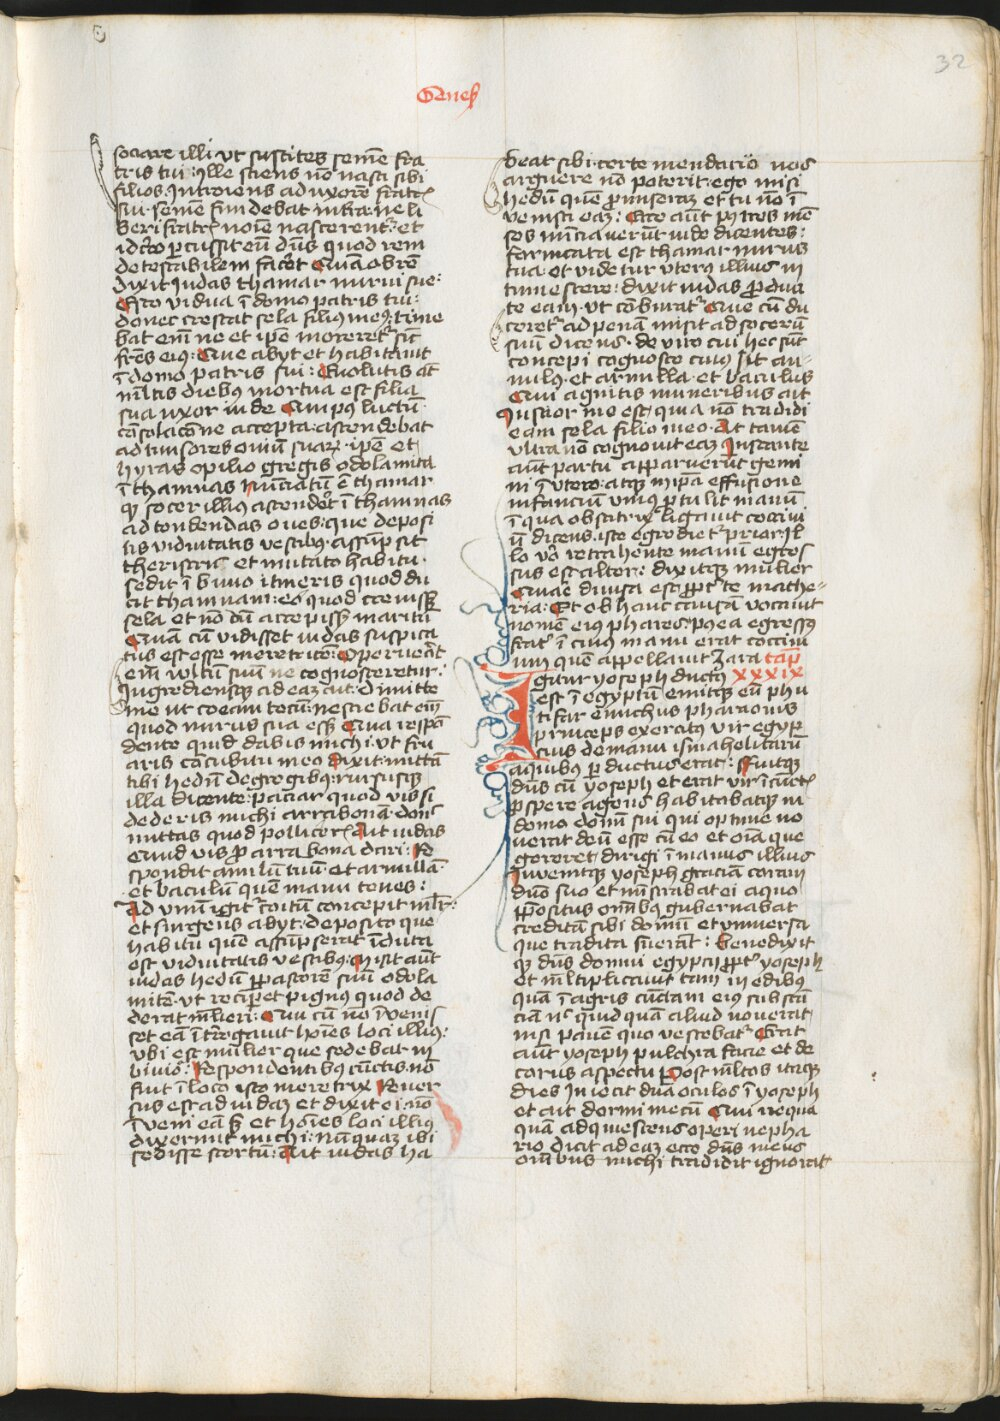 32
Genes
sociare illi ut suscites semē fra
tris tui · ylle sciens nō nasci sibi
filios · Introiens ad uxorē fratr
sui · semē fundebat in trā · ne li
beri fratrꝭ noīe nascerent᷑ et
idcō ꝑcussit eū dn̄s quod rem
detestabilem facēt Quāobrē
dixit Judas thamar nurui sue:
Esto vidua ī domo patris tui:
donec crescat sela filius meꝰ: time
bat em̄ ne et ip̄e moreret᷑ sic̄
fr̄es eiꝰ: Que abyt et habitauit
ī domo patris sui: Euolutis aūt
ml̄tis diebꝰ mortua est filia
sua uxor iude Qui pꝰ luctū
cōsolacōne accepta · ascendebat
ad tonsores oviū suaꝝ · ip̄e et
hyras opilio gregis odolamita
ī thamnas Nūciatū ē thamar
ꝙ socer illiꝰ ascendēt ī thamnas
ad tondendas oues: que deposi
tis viduitatis vestibꝰ · assūpsit
theristrū · et mutato habitu ·
sedit ī bivio itineris quod du
cit thamnam: eo quod crevissꝫ
sela et nō dū accepissꝫ maritū
Quā cū vidisset iudas suspica
tus est esse meretricē: Operuēat
em̄ vultū suū ne cognosceretur:
Ingrediensqꝫ ad eaꝫ ait · Dimitte
me ut coeam tecū: nesciebat em̄
quod nurus sua essꝫ Qua respō
dente quid dabis michi · ut fru
aris cōcubitu meo Dixit · mittā
tibi hedū de gregibꝰ: rursusqꝫ
illa dicente: paciar quod vis si
dederis michi arrabonā · donᷝ
mittas quod pollicerꝭ Ait iudas
Quid vis ꝓ arrabona dari: Re
spondit anulū tuū · et armillā ·
et baculū quē manu tenes:
Ad unū igit᷑ coitū concepit ml̄r:
et surgens abyt · deposito que
habitū quē assūpserat īduta
est viduitatis vestibꝰ: Misit aūt
iudas hedū ꝑ pastorē suū odola
mitē · ut reciꝑet pignꝰ quod de
derat ml̄ieri: Qui cū nō īvenis
set eā īterrogauit hoīes loci illiꝰ:
ubi est mulier que sedebat in
bivio: Respondentibꝰ cūctis · nō
fuit ī loco isto meretrix Rever
sus est ad iudaꝫ et dixit ei · nō
īveni eā sꝫ et hoīes loci illiꝰ
dixerunt michi: nūquaꝫ ibi
sedisse scortū: Ait iudas ha
beat sibi · certe mendacio nos
arguere nō poterit · ego misi
hedū quē ꝓmiseraꝫ et tu nō ī
venisti eaꝫ: Ecce aūt p tres mē
ses nūciaverūt iude dicentes:
fornicata est thamar nurus
tua · et videtur uterꝰ illius in
tumescere: dixit iudas ꝓduci
te eam · ut cōburat᷑ Que cū du
ceret᷑ ad penā misit ad socerū
suū dicens · de viro cui hec sūt
concepi cognosce cuiꝰ sit an
nulꝰ · et armilla · et baculus
Qui agnitis muneribus ait
Iustior me est, quia nō tradidi
eam sela filio meo · At tamē
ultra nō cognovit eaꝫ Instante
aūt partu apparuerūt gemi
ni ī utero: atqꝫ in ip̄a effusione
infanciū · unꝰ ꝓtulit manū
ī qua obstetrix ligauit cocciū
ū dicens · iste egrediet᷑ prior: Il
lo vo retrahente manū egres
sus est alter: dixitqꝫ mulier
Quare divisa est ꝓpt᷑ te mache
ria: Et ob hanc causam vocauit
nomē eiꝰ phares: pꝰea egressꝰ
frat᷑ ī cuiꝰ manu erat cocciū
num quē appellauit zara Cap̄
Igitur yoseph ductꝰ xxxix
est ī egyptū emitqꝫ eū phu
tifar eunuchus pharaonis
princeps exercitus vir egyp
cius de manu ismahelitarū
a quibꝰ ꝑductus erat: Fuitqꝫ
dn̄s cū yoseph et erat vir ī cūctꝭ
ꝓspere agens habitabatqꝫ in
domo domī sui qui optime no
uerat deū esse cū eo et oīa que
gereret dirigi ī manus illius
Invenitqꝫ yoseph graciā coram
dn̄o suo et mīstrabat ei a quo
ꝓpositus om̄ibꝰ gubernabat
creditā sibi domū et vniversa
que tradita fuerāt: Benedixit
qꝫ dn̄s domui egypcii ꝓpt᷑ yoseph
et ml̄tiplicauit tam in edibus
quā ī agris cūctam eiꝰ substā
ciā nc̄ quid quā aliud noverat
nisi panē quo vescebat᷑ Erat
aūt yoseph pulchra facie et de
corus aspectu Post ml̄tos itaqꝫ
dies Iniecit dn̄a oculos ī yoseph
et ait dormi mecū Qui nequa
quā adquiescens operi nepha
rio dicit ad eaꝫ ecce dn̄s meus
om̄ibus michi tradidit ignorat